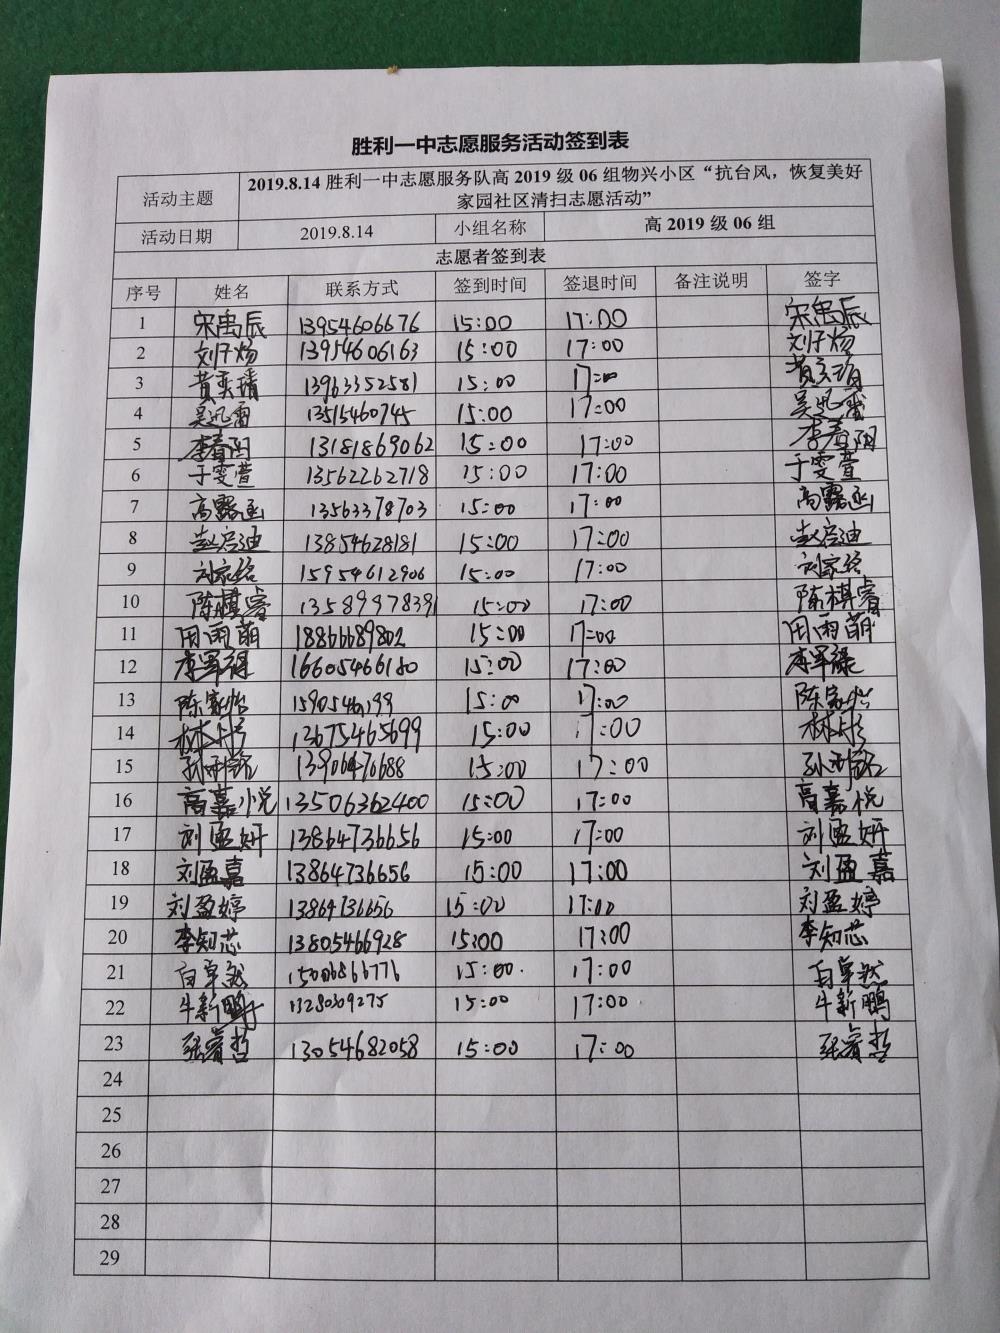 胜利一中志愿服务活动签到表
活动主题 2019.8.14 胜利一中志愿服务队高 2019 级 06 组物兴小区“抗台风，恢复美好
家园社区清扫志愿活动”
活动日期 2019.8.14 小组名称 高 2019 级 06 组
志愿者签到表
序号 姓名 联系方式 签到时间 签退时间 备注说明 签字
1 宋禹辰 13954606676 15:00 17:00 宋禹辰
2 刘子炀 13954606163 15:00 17:00 刘子炀
3 黄奕瑃 13963352581 15:00 17:00
4 吴迅雷 13515460745 15:00 17:00 吴迅雷
5 李春阳 13181869062 15:00 17:00 李春阳
6 于雯萱 13562262718 15:00 17:00 于雯萱
7 高露函 13563378703 15:00 17:00 高露函
8 赵启迪 13854628181 15:00 17:00 赵启迪
9 刘家铭 15954612906 15:00 17:00 刘家铭
10 陈棋睿 13589978391 15:00 17:00 陈棋睿
11 周雨萌 18866689802 15:00 17:00 周雨萌
12 李军禄 16605466180 15:00 17:00 李军禄
13 陈家怡 15:00 17:00 陈家怡
14 林彤 13675465699 15:00 17:00 林彤
15 13906476688 15:00 17:00
16 高嘉悦 13506362400 15:00 17:00 高嘉悦
17 刘盈妍 13864736656 15:00 17:00 刘盈妍
18 刘盈嘉 13864736656 15:00 17:00 刘盈嘉
19 刘盈婷 13864736656 15:00 17:00 刘盈婷
20 李知芯 13805466928 15:00 17:00 李知芯
21 白卓然 15006866776 15:00. 17:00 白卓然
22 牛新鹏 15:00 17:00 牛新鹏
23 张睿哲 13054682058 15:00 17:00 张睿哲
24
25
26
27
28
29